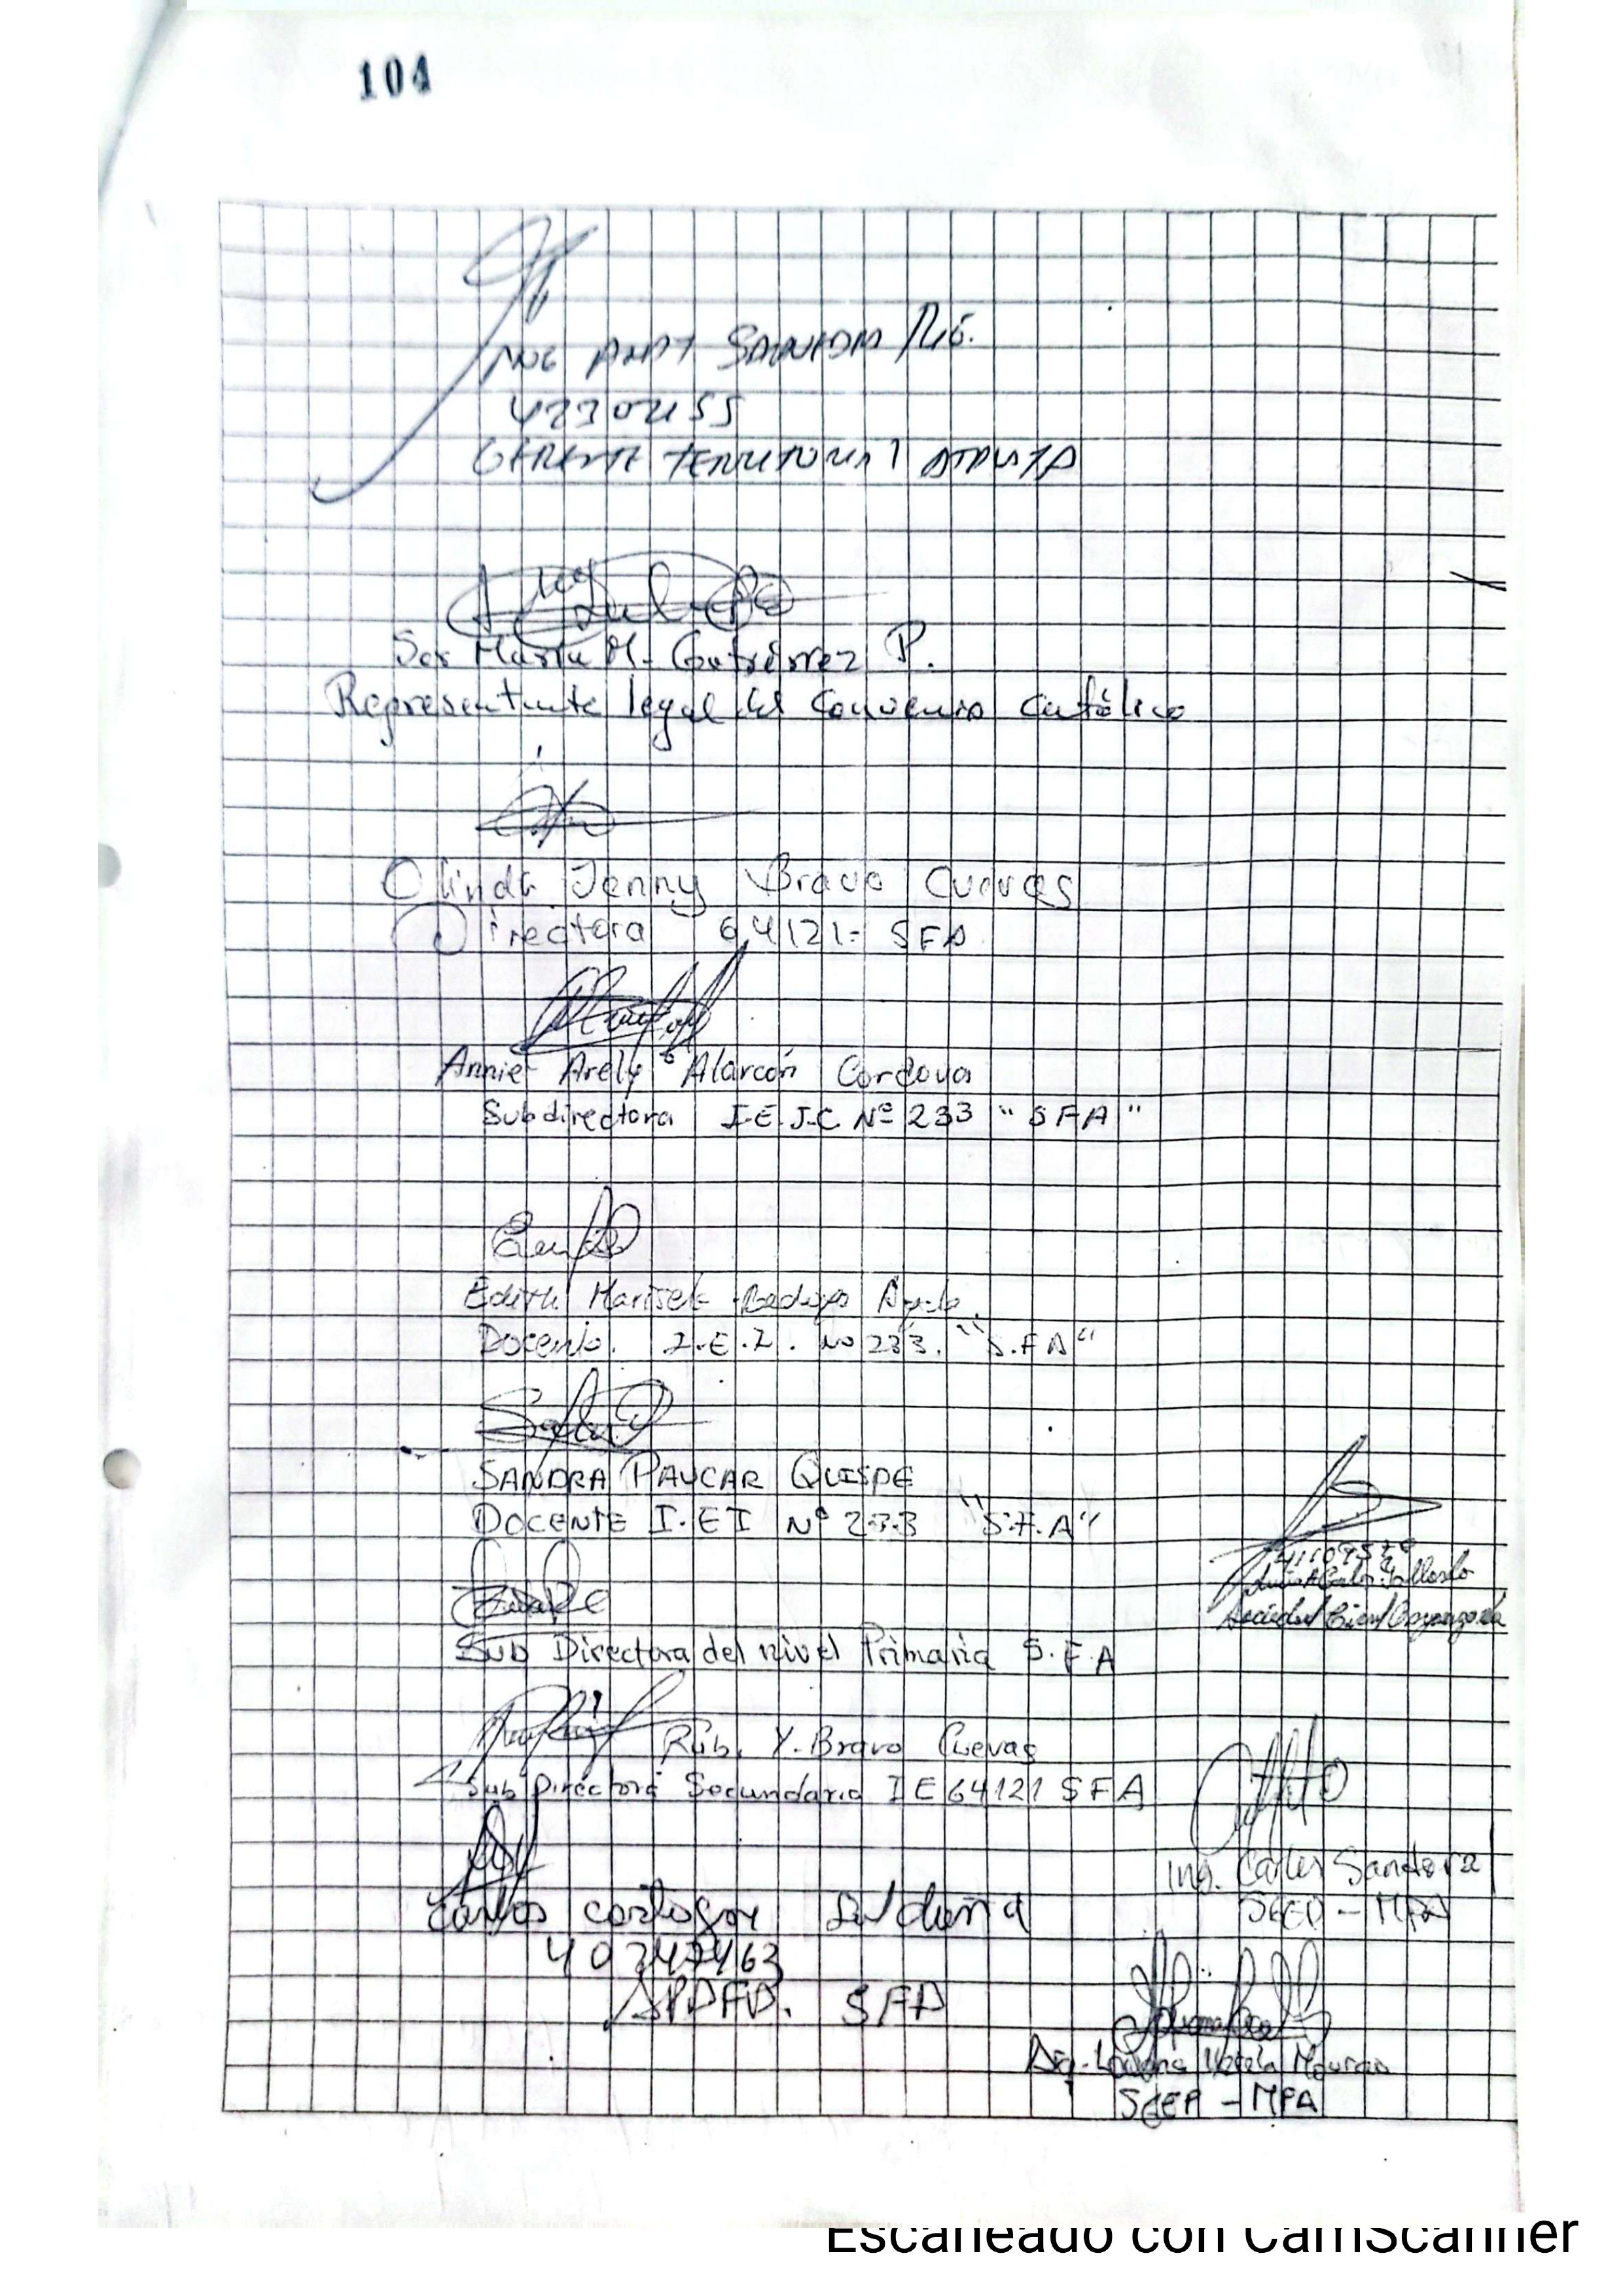 104
42302155
GERENTE TERRITORIAL ATALAYA
Sor María M. Gutiérrez P.
Representante legal del Convenio Católico
Olinda Jenny Bravo Cuevas
Directora 64121- SFA
Annie Arely Alarcón Cordova
Subdirectora I.E.I.C Nº 233 "SFA"
Edith Marisela Bedoya Ayala
Docente. I.E.I. No 233. "S.F.A"
SANDRA PAUCAR QUISPE
DOCENTE I.EI Nº 233 "S.F.A"
Sociedad Civil Organizada
Sub Directora del nivel Primaria S.F.A
Rub. Y. Bravo Cuevas
Sub Directora Secundaria IE 64121 SFA
Ing. Carlos Sandoval
Carlos Saldaña
SGED - MPA
40747463
APAFA. SFA
Arq.
SGEP - MPA
Escaneado con CamScanner